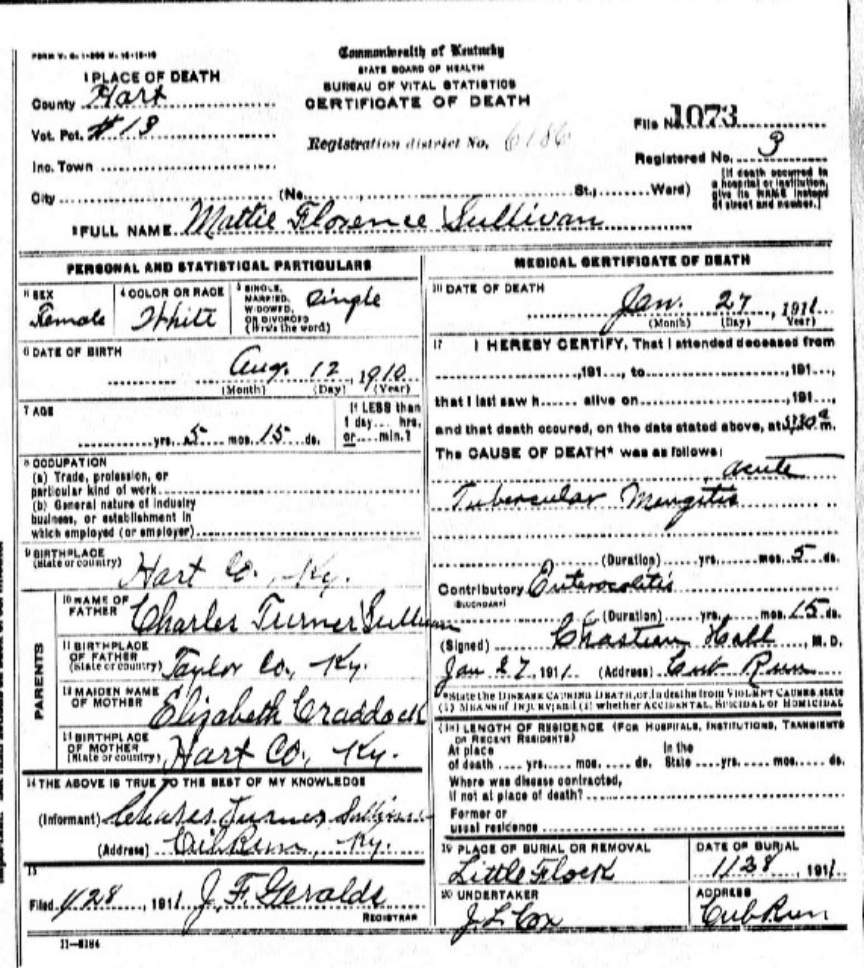 FORM V. S. 1-
Commonwealth of Kentucky
STATE BOARD OF HEALTH
BUREAU OF VITAL STATISTICS
CERTIFICATE OF DEATH
1 PLACE OF DEATH
County Hart
Vot. Pct. #18
Inc. Town
City
Registration district No. 6186
File No. 1073
Registered No. 3
(No. St., Ward)
[If death occurred in
a hospital or institution,
give its NAME instead
of street and number.]
2 FULL NAME Mattie Florence Sullivan
PERSONAL AND STATISTICAL PARTICULARS
3 SEX Female
4 COLOR OR RACE White
5 SINGLE, MARRIED, WIDOWED, OR DIVORCED (Write the word) Single
6 DATE OF BIRTH
Aug. 12, 1910
(Month) (Day) (Year)
7 AGE
yrs. 5 mos. 15 ds.
If LESS than
1 day... hrs.
or.... min.?
8 OCCUPATION
(a) Trade, profession, or
particular kind of work
(b) General nature of industry
business, or establishment in
which employed (or employer)
9 BIRTHPLACE
(State or country) Hart Co., Ky.
PARENTS
10 NAME OF FATHER Charles Turner Sullivan
11 BIRTHPLACE OF FATHER (State or country) Taylor Co., Ky.
12 MAIDEN NAME OF MOTHER Elizabeth Craddock
13 BIRTHPLACE OF MOTHER (State or country) Hart Co., Ky.
14 THE ABOVE IS TRUE TO THE BEST OF MY KNOWLEDGE
(Informant) Charles Turner Sullivan
(Address) Cub Run, Ky.
15
Filed 1/28, 1911 J. F. Geralds
REGISTRAR
11-
MEDICAL CERTIFICATE OF DEATH
16 DATE OF DEATH
Jan. 27, 1911
(Month) (Day) Year)
17 I HEREBY CERTIFY, That I attended deceased from
,191..., to ,191...,
that I last saw h alive on , 191...,
and that death occured, on the date stated above, at 5:30 a m.
The CAUSE OF DEATH* was as follows:
acute
Tubercular Mengitis
(Duration) yrs. mos. 5 ds.
Contributory Enterocolitis
(SECONDARY)
(Duration) yrs. mos. 15 ds.
(Signed) Chastien Hall, M.D.
Jan 27, 1911 (Address) Cub Run
*State the DISEASE CAUSING DEATH, or, in deaths from VIOLENT CAUSES, state
(1) MEANS of INJURY; and (2) whether ACCIDENTAL, SUICIDAL or HOMICIDAL
18 LENGTH OF RESIDENCE (FOR HOSPITALS, INSTITUTIONS, TRANSIENTS
OR RECENT RESIDENTS)
At place of death yrs. mos. ds. In the State yrs. mos. ds.
Where was disease contracted,
if not at place of death?
Former or
usual residence
19 PLACE OF BURIAL OR REMOVAL
Little Flock
DATE OF BURIAL
1/28, 1911
20 UNDERTAKER
J L Cox
ADDRESS
Cub Run